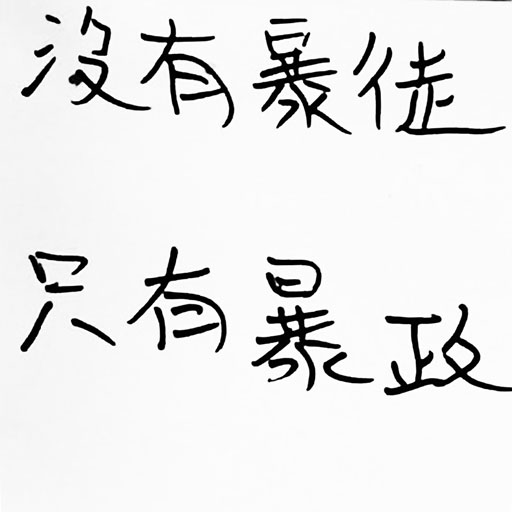 沒有暴徒
只有暴政